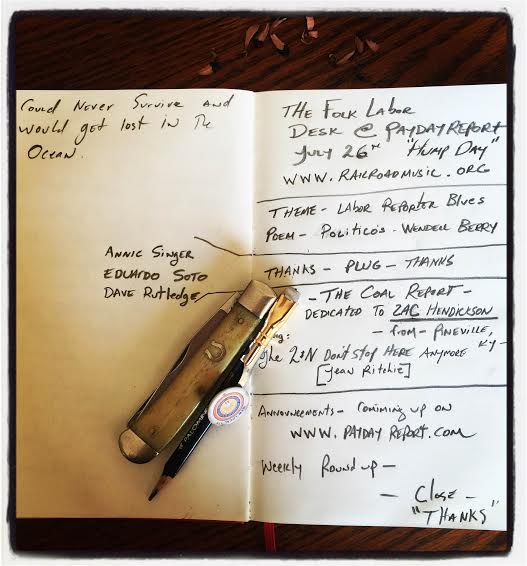 Could Never Survive and
would get lost in The
Ocean.
Annie Singer
Eduardo Soto
Dave Rutledge
The Folk Labor
Desk @ PaydayReport
July 26th "Hump Day"
www.RailroadMusic.org
Theme - Labor Reporter Blues
Poem - Politico's - Wendell Berry
Thanks - Plug - Thanks
- The Coal Report -
Dedicated to Zac Hendickson
- from - Pineville,
Ky -
The L&N Don't Stop Here Anymore
[Jean Ritchie]
Announcements - Comiming up on
www.PaydayReport.com
Weekly Round up -
- Close -
"Thanks"
PALOMINO